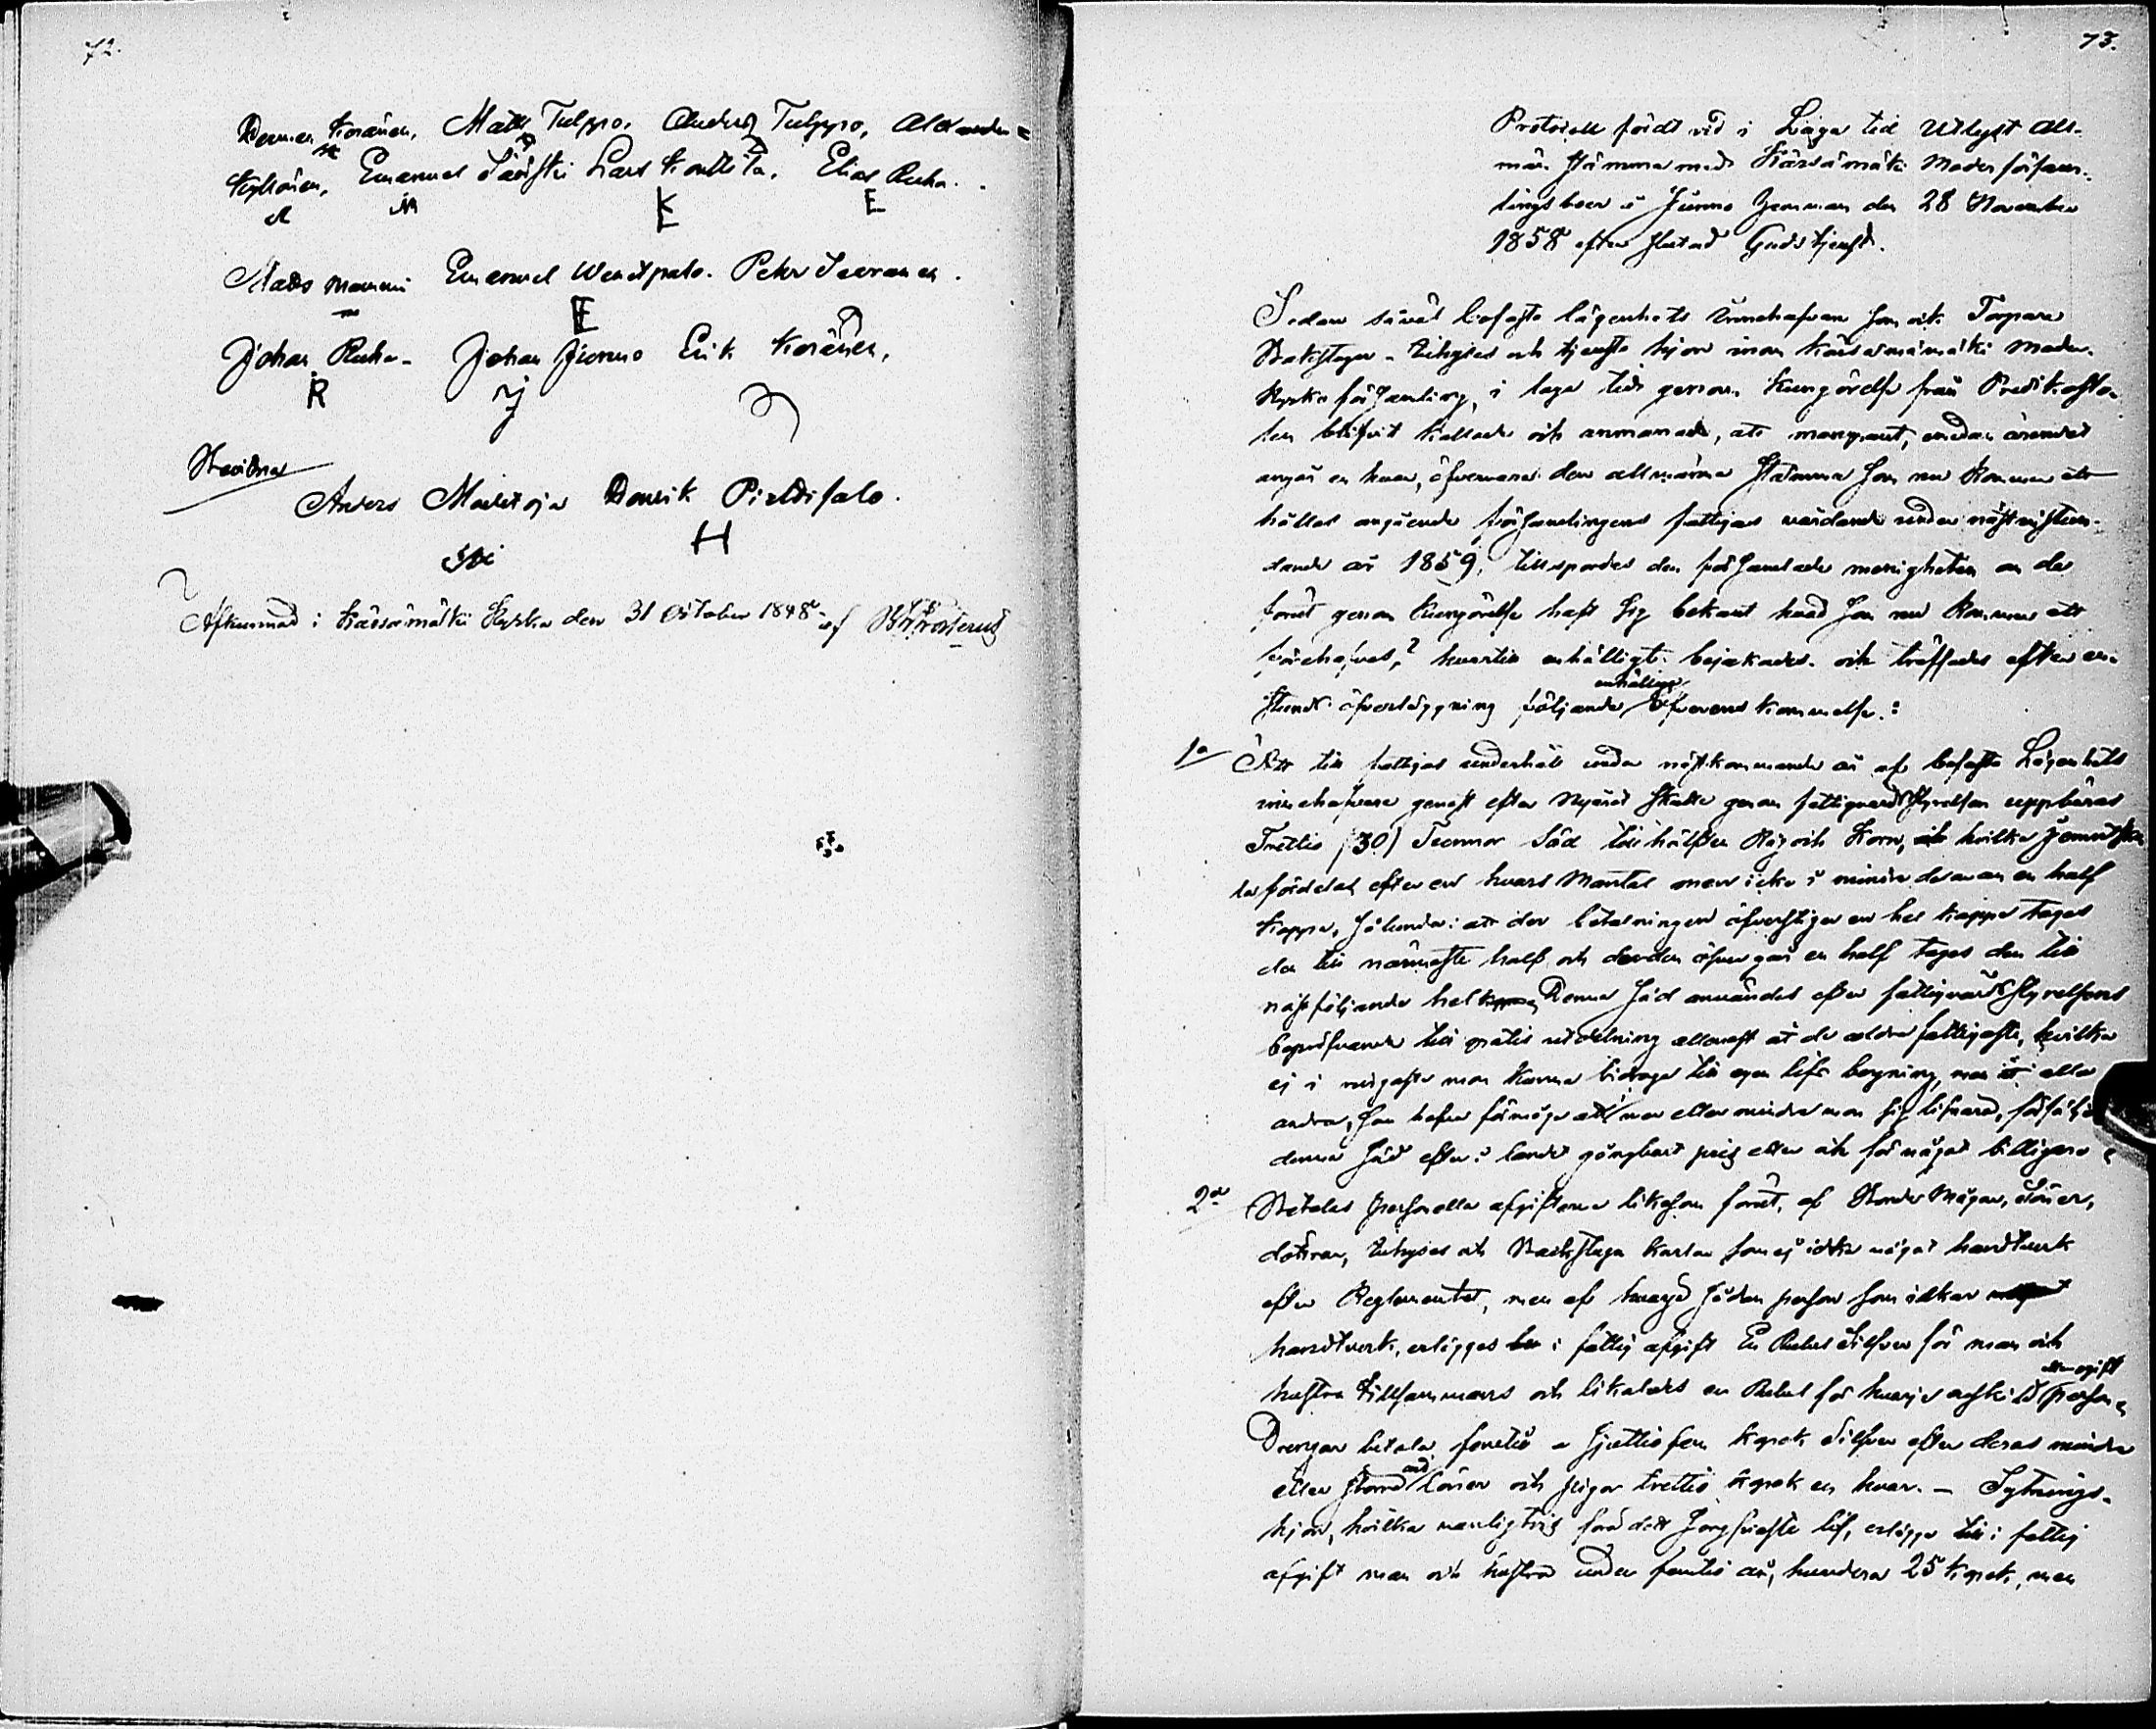 72.
Matts Tulppo, Anders Tulppo, Alexander
Emanuel Lars Konttila, Elias Ruha.
A M K E
Mats Emanuel Wenetpalo. Peter
E
Johan Ruha. Johan Junno Erik Koränen,
R J
Bevittna
Anders Maditoja Henrik Pirttisalo.
H
Afkunnad i Kärsämäki Kyrka den 31 October 1848 af
73.
Protokoll fördt vid i Laga tid Utlyst All-
män stämma med Kärsämäki Moderförsam-
lings boer å Junno hemman den 28 November
1858 efter slutad Gudstjenst.
Sedan såväl besagte lägenhets Innehafvare som ock Torpare
Backstugu- Inhyses och tjenste hjon inom Kärsämäki Moder-
kyrko församling, i laga tid genom Kungörelse från Predikosto-
len blifvit kallade och anmanade, att mangrant, emedan ärendet
angår en hvar, öfvervara den allmänna Stämma som nu kommer att
hållas angående församlingens fattigas vårdande under nästinstun-
dande år 1859, tillspordes den församlade menigheten om de
förut genom Kungörelse haft sig bekant hvad som nu kommer att
förehafvas,? hvartill enhälligt bejakades och träffades efter en
stunds öfverläggning följande enhälliga öfverens kommelse.:
1o Att till fattigas underhåll under nästkommande år af besagte Lägenhets
innehafvare genast efter Nyåret skulle genom fattigvårdsstyrelsen uppbäras
Trettio (30) Tunnor Säd till hälften Råg och Korn, hvilka
fördelas efter en hvars Mantal men icke i mindre än en half
kappe, sålunda: att der betalningen öfverstiger en hel kappe tages
den till närmaste half och der den öfvergår en half tages den till
nästföljande hel. Denna Säd användes efter fattigvårds styrelsens
bepröfvande till gratis utdelning allenast åt de äldre fattigaste, hvilka
ej i ringaste mon kunna bidraga till egen lifs bergning, men åt alla
andra, som hafva förmåga att mer eller mindre mon sig lifnära, försälja
denna Säd efter i landet gångbart pris eller ock för något billigare.
2o Betalas personella afgifterna likasom förut, af Bonde Mågar, Söner,
döttrar, Inhyses och Backstugu karlar som ej idka något handtverk
efter Reglementet, men af hvarje sådan person som idkar
handtverk, erlägges i fattig afgift En Rubel Silfver för man och
hustru tillsammans och likaledes en Rubel för hvarje enskild eller ogift person.
Drengar betala femtio a sjuttiofem kopek Silfver efter deras mindre
eller större löner och pigor trettio kopek en hvar. - Sytnings-
hjon, hvilka vanligtvis föra det sorgfriaste lif, erlägge till i fattig
afgift man och hustru under femtio år, hvardera 25 kopek, men